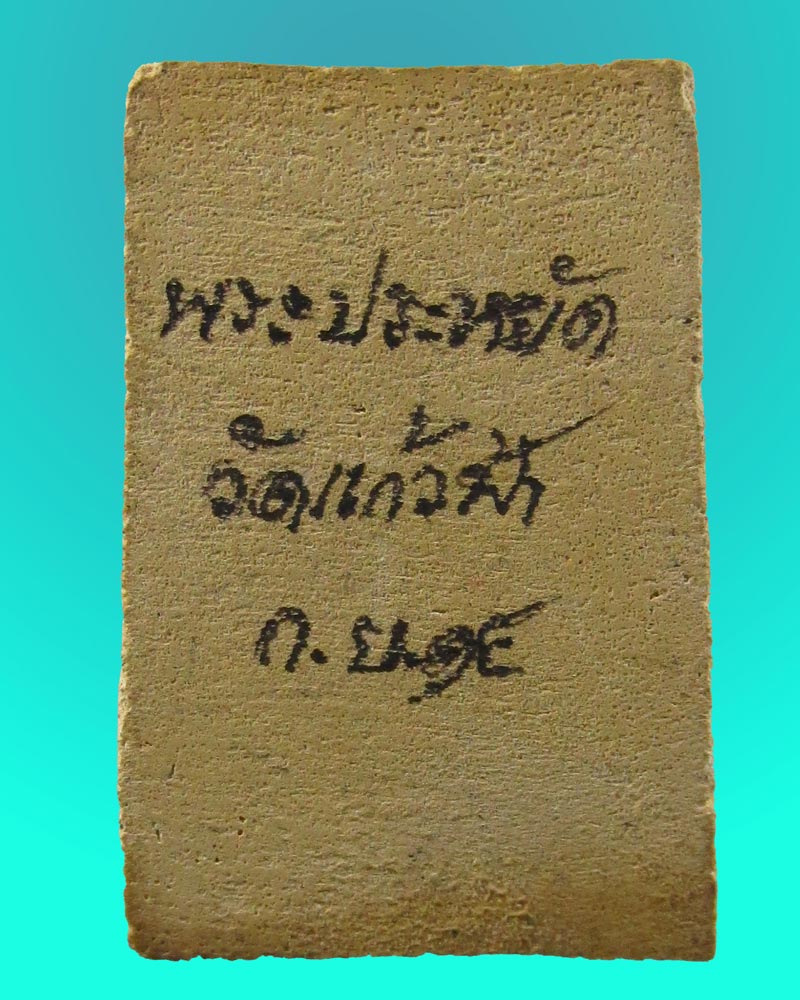 พระประหยัด
วัดแก้วฟ้า
ก.